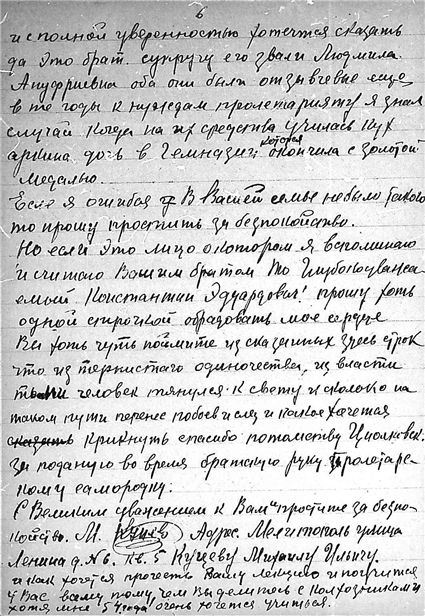 6
и с полной уверенностью хочется сказать
да это брат. супругу его звали Людмила.
Ануфриевна оба они были отзывчевые еще
в те годы к нуждам пролетарияту я знал
случай когда на их средства училась кух
аркина дочь в Гемназии которая окончила с золотой
медалью
Если я ошибался В Вашей семье небыло такого
то прошу простить за безпокойство.
Но если это лицо о котором я вспоминаю
и считаю Вашим братом То Глубокоуважа-
емый Константин Эдуардович! прошу хоть
одной строчкой обрадовать мое сердце
Вы хоть чуть поймите из сказанных здесь строк
что из тернистаго одиночества, из власти
тьми человек тянулся к свету и сколько на
таком пути перенес побоев и слез и как ... хачется
крикнуть спасибо потомству Циолковск.
за поданую во время братскую руку. Пролетарс-
кому самородку.
С Великим уважением к Вам простите за безпо-
койство. М. Адрес Мелитополь улица
Ленина д. №6. кв. 5 Кущеву Михаилу Ильичу
и как хочется прочесть Вашу лекцию и поучится
у Вас всему тому, чем Вы делитесь с Колхозниками
хотя мне 54 года очень хочется учиться.